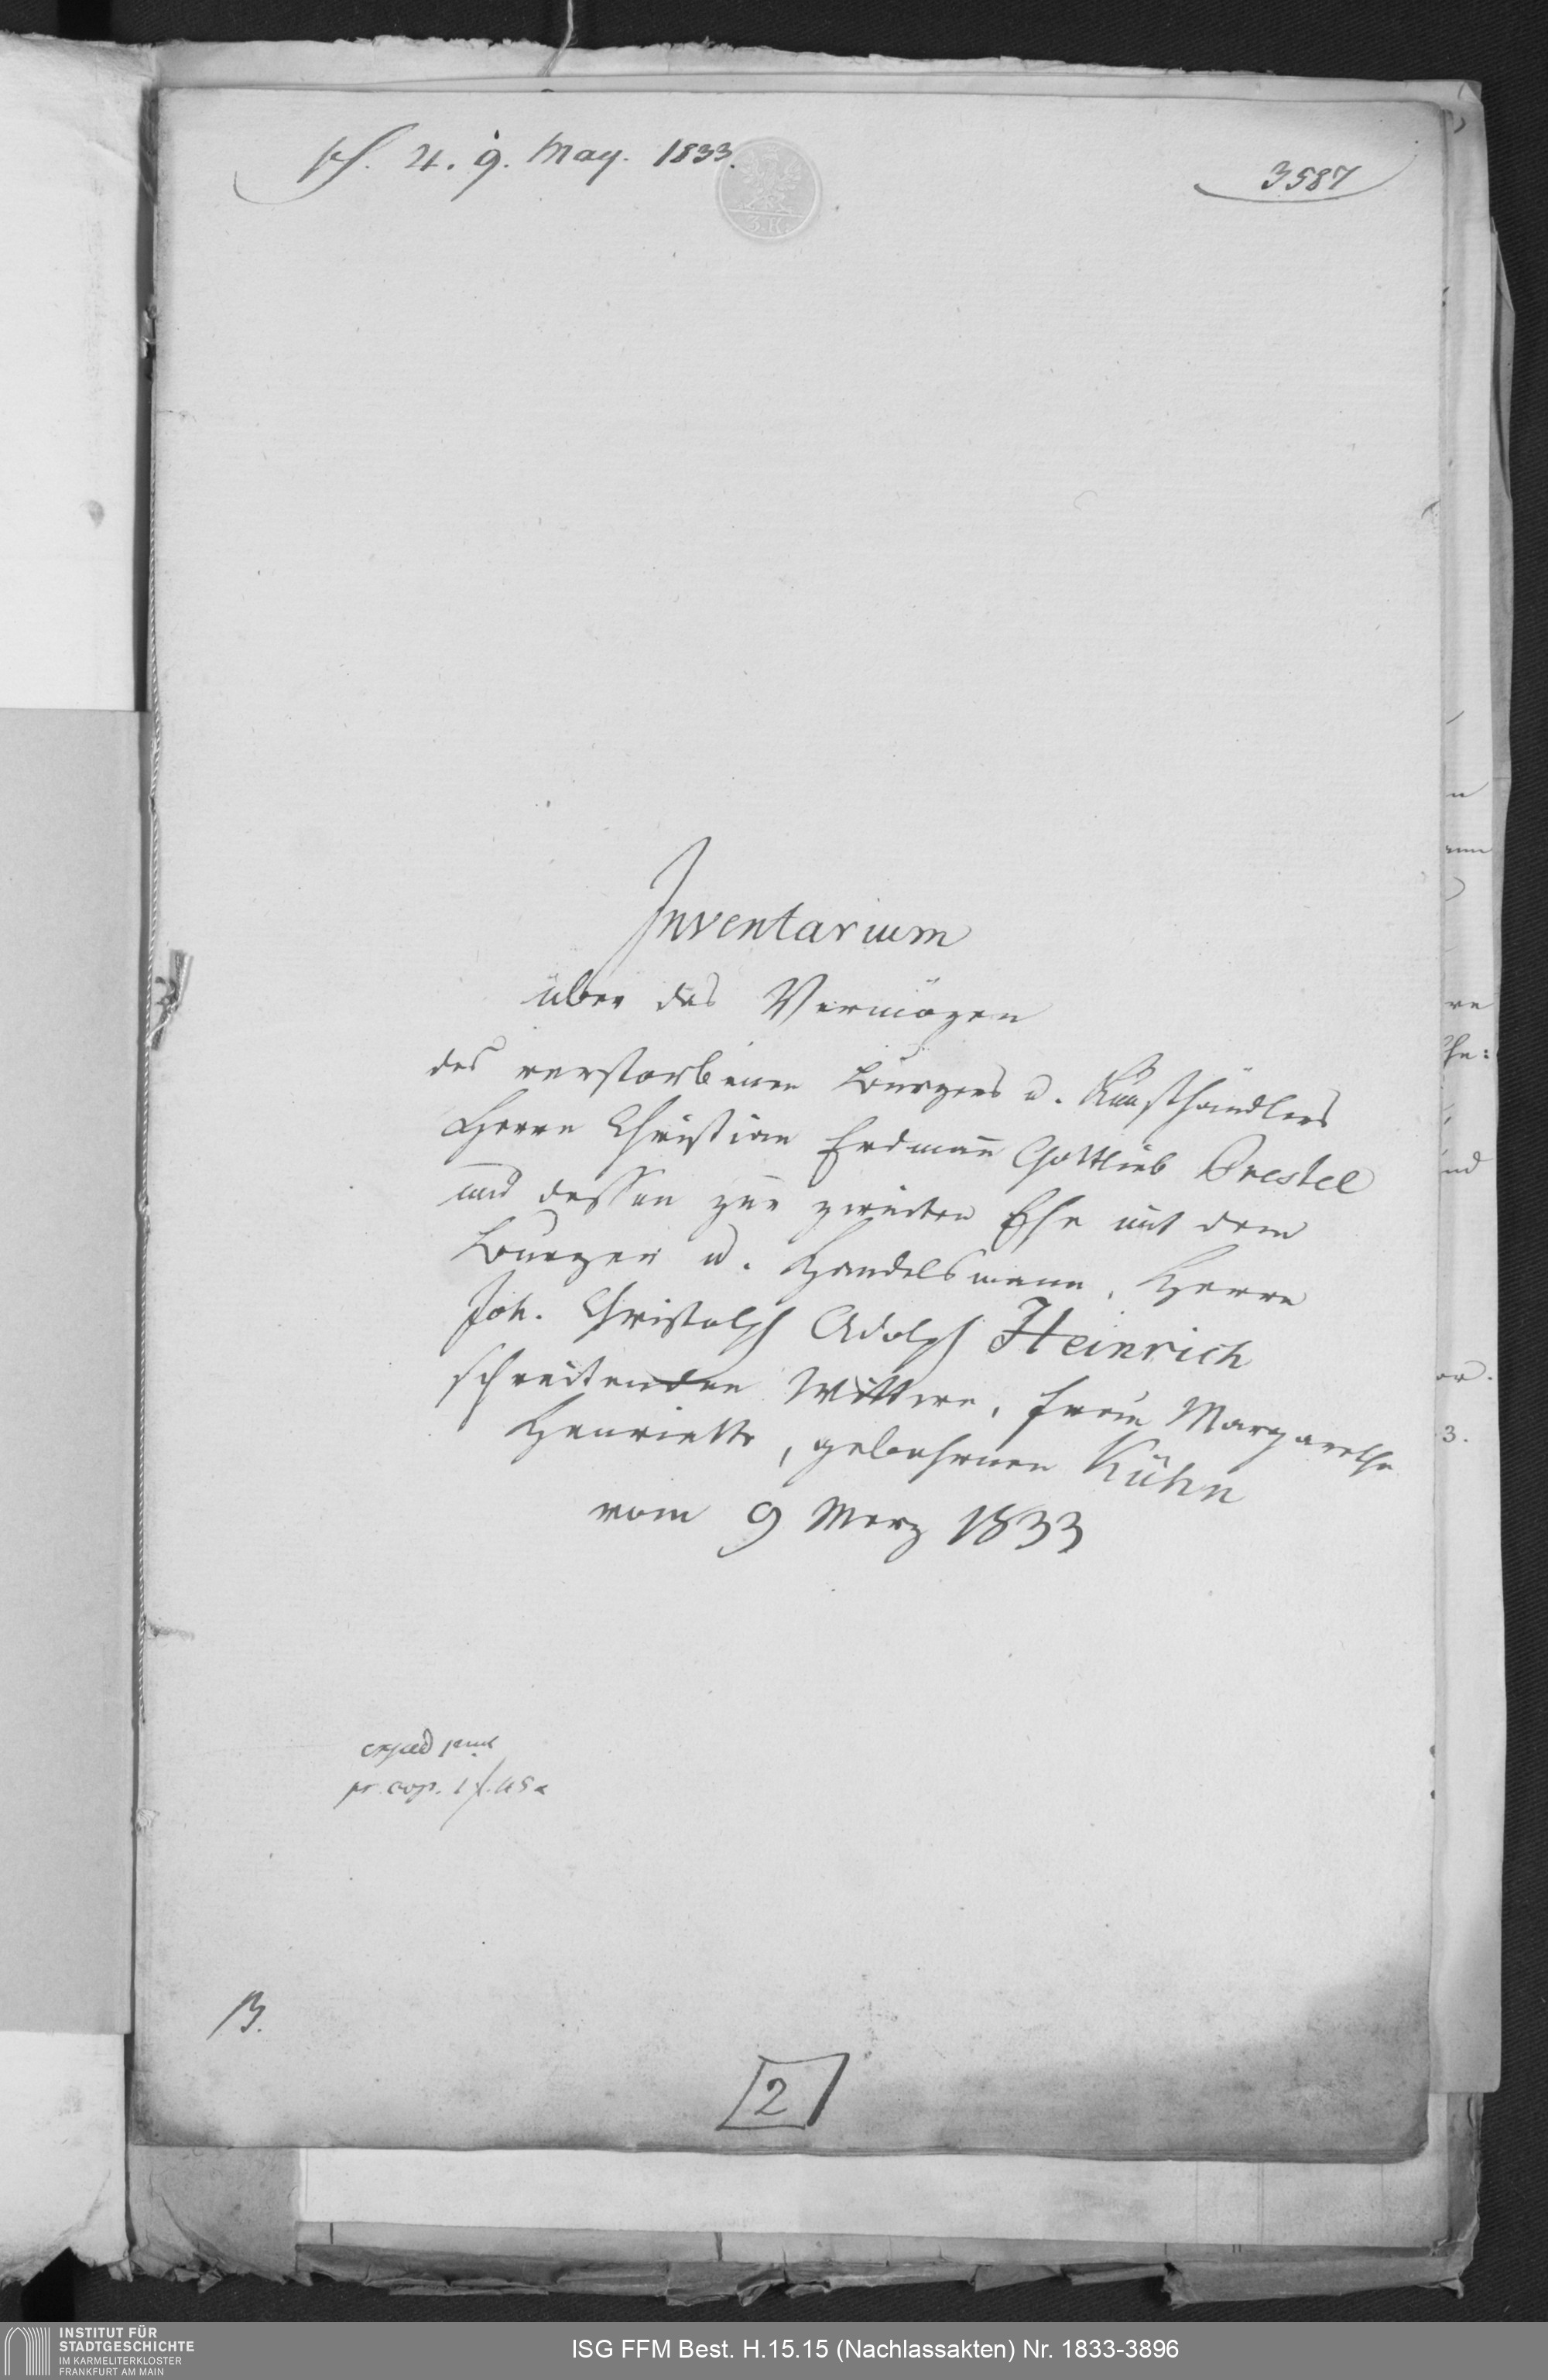 ps. 4. 9. May. 1833.
3587
3.K.
Inventarium
über das Vermögen
des verstorbenen Burgers u. Kunsthändlers
Herrn Christian Erdmann Gottlieb Prestel
und dessen zur zweiten Ehe mit dem
Burger u. Handelsmann, Herrn
Joh. Christolph Adolph Heinrich
schreitenden Wittwe, Frau Margarethe
Henriette, gebohrnen Kühn
vom 9 Merz 1833
pr. cop. 1 f. 45 x
B.
2
INSTITUT FÜR
STADTGESCHICHTE
IM KARMELITERKLOSTER
FRANKFURT AM MAIN
ISG FFM Best. H.15.15 (Nachlassakten) Nr. 1833-3896